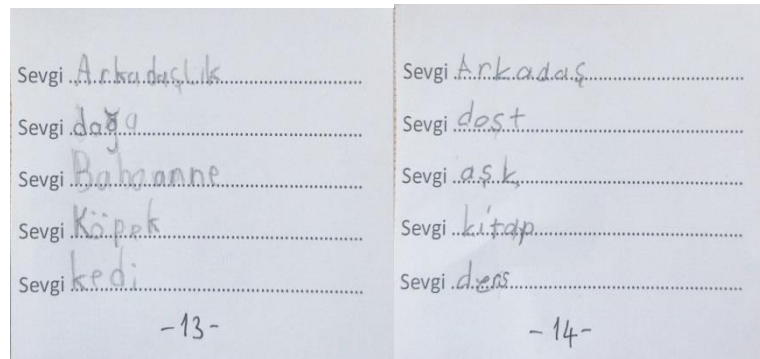 Sevgi Arkadaşlık
Sevgi doğa
Sevgi Babaanne
Sevgi Köpek
Sevgi kedi
-13-
Sevgi Arkadaş
Sevgi dost
Sevgi aşk
Sevgi kitap
Sevgi ders
-14-